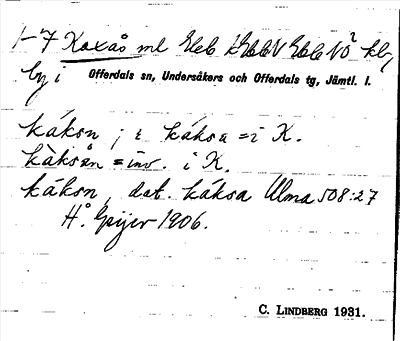 1-7 Kaxås ml
by i Offerdals sn, Undersåkers och Offerdals tg, Jämtl. l.
káksn ; i káksa = i K.
kàksån = inv. i K.
káksn, dat. káksa Ulma 508:27
H. Geijer 1906.
C. LINDBERG 1931.